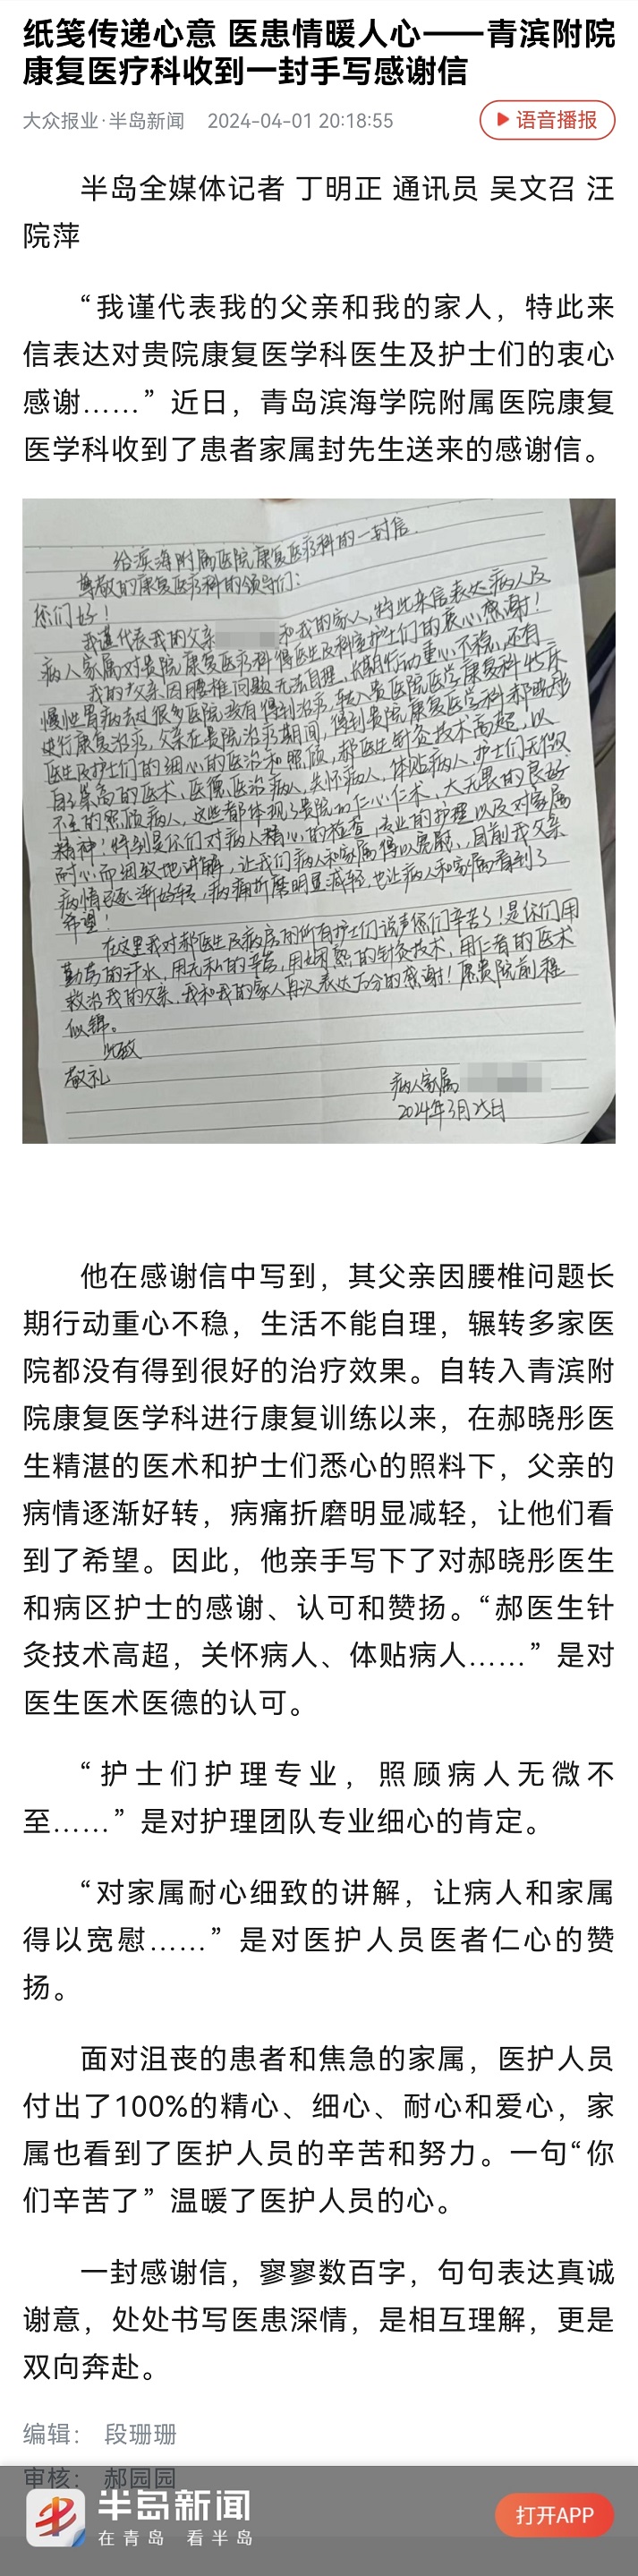 纸笺传递心意 医患情暖人心——青滨附院
康复医疗科收到一封手写感谢信
大众报业·半岛新闻 2024-04-01 20:18:55
语音播报
半岛全媒体记者 丁明正 通讯员 吴文召 汪
院萍
“我谨代表我的父亲和我的家人，特此来
信表达对贵院康复医学科医生及护士们的衷心
感谢……”近日，青岛滨海学院附属医院康复
医学科收到了患者家属封先生送来的感谢信。
给滨海附属医院康复医疗科的一封信
尊敬的康复医疗科的领导们：
你们好！
我谨代表我的父亲 和我的家人，特此来信表达病人及
病人家属对贵院康复医疗科 医生及科室护士们的衷心感谢！
我的父亲因腰椎问题无法自理，长期行动重心不稳，还有
慢性胃病去过很多医院没有得到治疗，转入贵医院医学康复科
进行康复治疗，父亲在贵院治疗期间，得到贵院康复医学科郝晓彤
医生及护士们的细心的医治和照顾，郝医生针灸技术高超，以
自己崇高的医术，医德，医治病人，关怀病人，体贴病人，护士们无微
不至的照顾病人，这些都体现了贵院的仁心仁术，大无畏的良好
精神！特别是你们对病人精心的检查，专业的护理以及对家属
耐心而细致地讲解，让我们病人和家属得以宽慰，目前我父亲
病情已逐渐好转，病痛折磨明显减轻，也让病人和家属看到了
希望！
在这里我对郝医生及病房的所有护士们说声你们辛苦了！是你们用
勤劳的汗水，用无私的辛苦，用娴熟的针灸技术，用仁者的医术
救治我的父亲，我和我的家人再次表达万分的感谢！愿贵院前程
似锦。
此致
敬礼
病人家属
2024年3月25日
他在感谢信中写到，其父亲因腰椎问题长
期行动重心不稳，生活不能自理，辗转多家医
院都没有得到很好的治疗效果。自转入青滨附
院康复医学科进行康复训练以来，在郝晓彤医
生精湛的医术和护士们悉心的照料下，父亲的
病情逐渐好转，病痛折磨明显减轻，让他们看
到了希望。因此，他亲手写下了对郝晓彤医生
和病区护士的感谢、认可和赞扬。“郝医生针
灸技术高超，关怀病人、体贴病人……”是对
医生医术医德的认可。
“护士们护理专业，照顾病人无微不
至……”是对护理团队专业细心的肯定。
“对家属耐心细致的讲解，让病人和家属
得以宽慰……”是对医护人员医者仁心的赞
扬。
面对沮丧的患者和焦急的家属，医护人员
付出了100%的精心、细心、耐心和爱心，家
属也看到了医护人员的辛苦和努力。一句“你
们辛苦了”温暖了医护人员的心。
一封感谢信，寥寥数百字，句句表达真诚
谢意，处处书写医患深情，是相互理解，更是
双向奔赴。
编辑： 段珊珊
审核： 郝园园
半岛新闻
在青岛 看半岛
打开APP